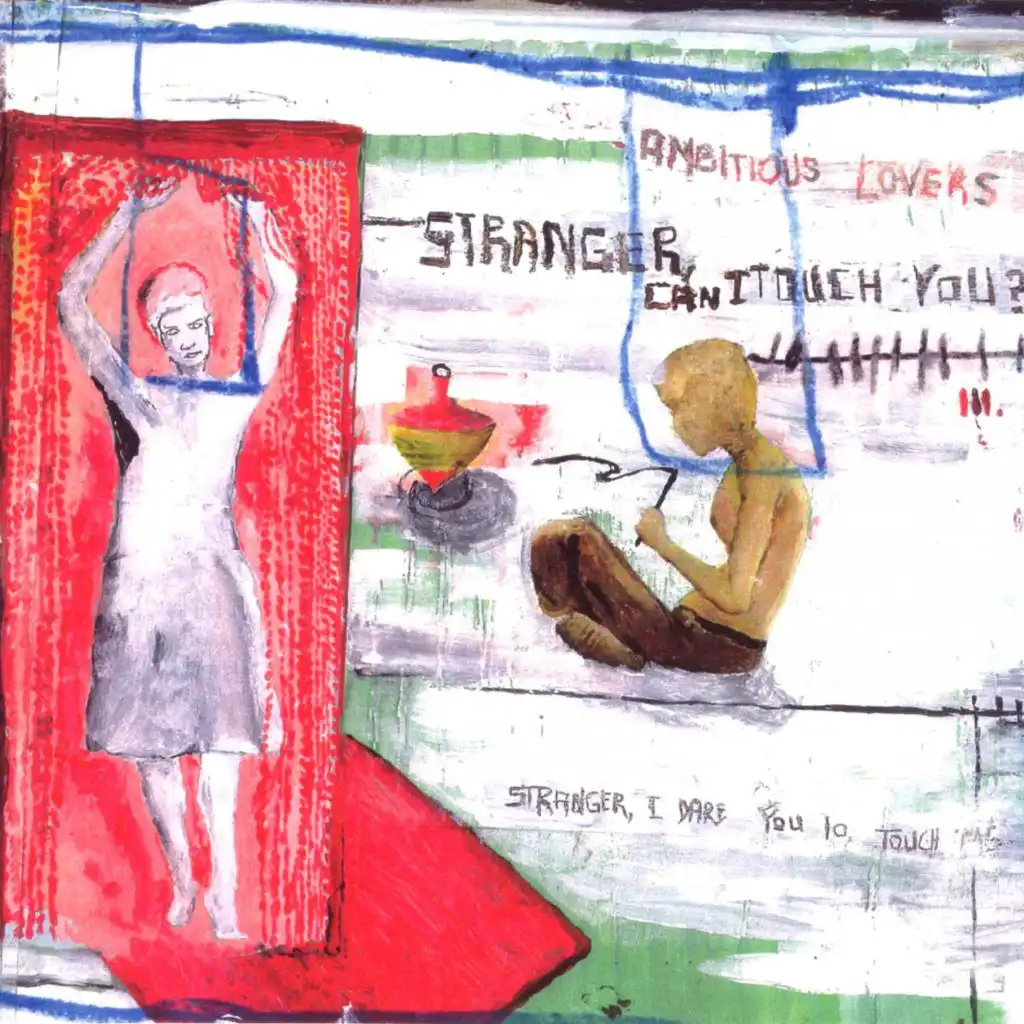 AMBITIOUS LOVERS
STRANGER,
CAN I TOUCH YOU?
III.
STRANGER, I DARE YOU TO TOUCH ME